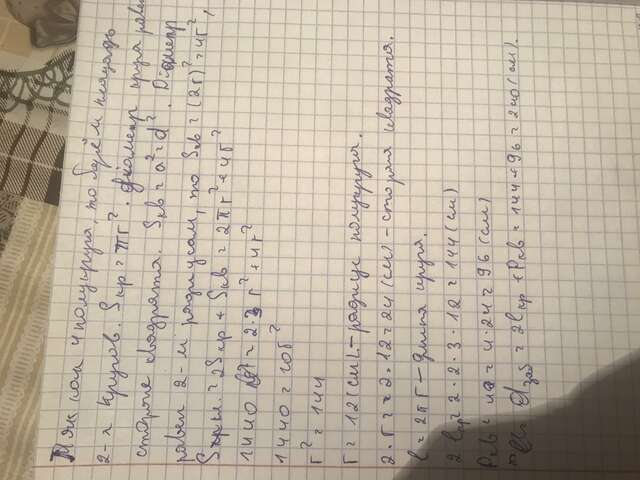 Так как 4 полукруга, то берём площадь
2-х кругов. Sкр = πr². Диаметр круга равен
стороне квадрата. Sкв = a² = d². Диаметр
равен 2-м радиусам, то Sкв = (2r)² = 4r²,
S = 2Sкр + Sкв = 2πr² + 4r²
1440 = 2·3 r² + 4r²
1440 = 10r²
r² = 144
r = 12 (см) – радиус полукруга.
2·r = 2·12 = 24 (см) – сторона квадрата.
l = 2πr – длина круга.
2 lкр = 2·2·3·12 = 144 (см)
Pкв = 4a = 4·24 = 96 (см)
lзаб = 2lкр + Pкв = 144 + 96 = 240 (см).